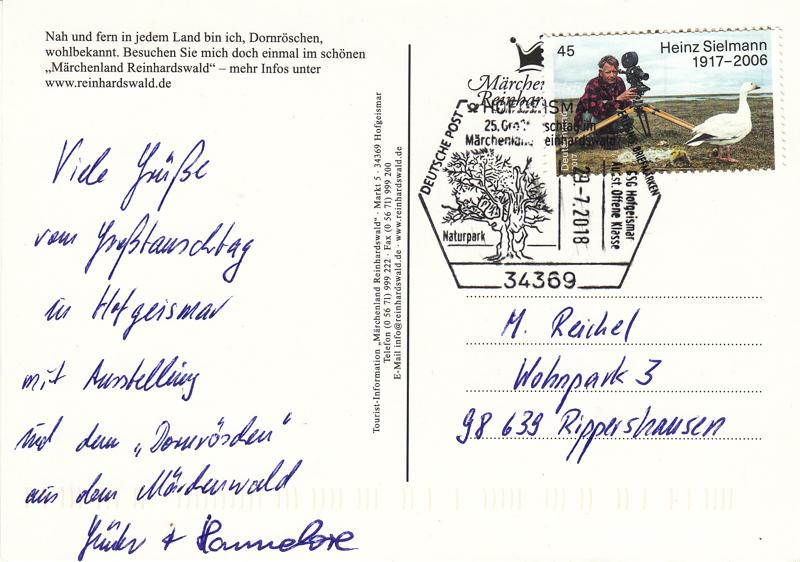 Nah und fern in jedem Land bin ich, Dornröschen,
wohlbekannt. Besuchen Sie mich doch einmal im schönen
„Märchenland Reinhardswald“ – mehr Infos unter
www.reinhardswald.de
Viele Grüße
vom Großtauschtag
in Hofgeismar
mit Ausstellung
und dem „Dornröschen“
aus dem Märchenwald
+ Hannelore
Tourist-Information „Märchenland Reinhardswald“ · Markt 5 · 34369 Hofgeismar
Telefon (0 56 71) 999 222 · Fax (0 56 71) 999 200
E-Mail info@reinhardswald.de · www.reinhardswald.de
45
Heinz Sielmann
1917–2006
Märchen
Reinhar
DEUTSCHE POST
HOFGEISMAR
25. Großtauschtag im
Märchenland Reinhardswald
BRIEFMARKEN
Naturpark
29-7.2018
SSG Hofgeismar
Ausst. Offene Klasse
34369
M. Reichel
Wohnpark 3
98 639 Rippershausen